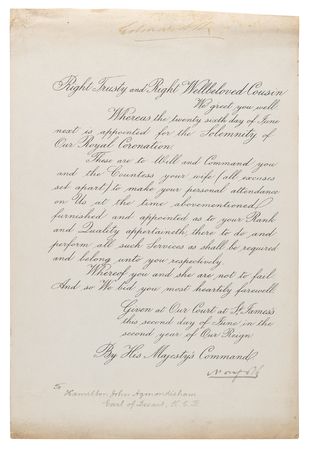 Right Trusty and Right Wellbeloved Cousin
We greet you well.
Whereas the twenty sixth day of June
next is appointed for the Solemnity of
Our Royal Coronation.
These are to Will and Command you
and the Countess your wife (all excuses
set apart) to make your personal attendance
on Us at the time abovementioned
furnished and appointed as to your Rank
and Quality appertaineth, there to do and
perform all such Services as shall be required
and belong unto you respectively
Whereof you and she are not to fail
And so We bid you most heartily farewell
Given at Our Court at St James's
this second day of June in the
second year of Our Reign
By His Majesty's Command
Norfolk
To
Hamilton John Agmondisham
Earl of K.G.